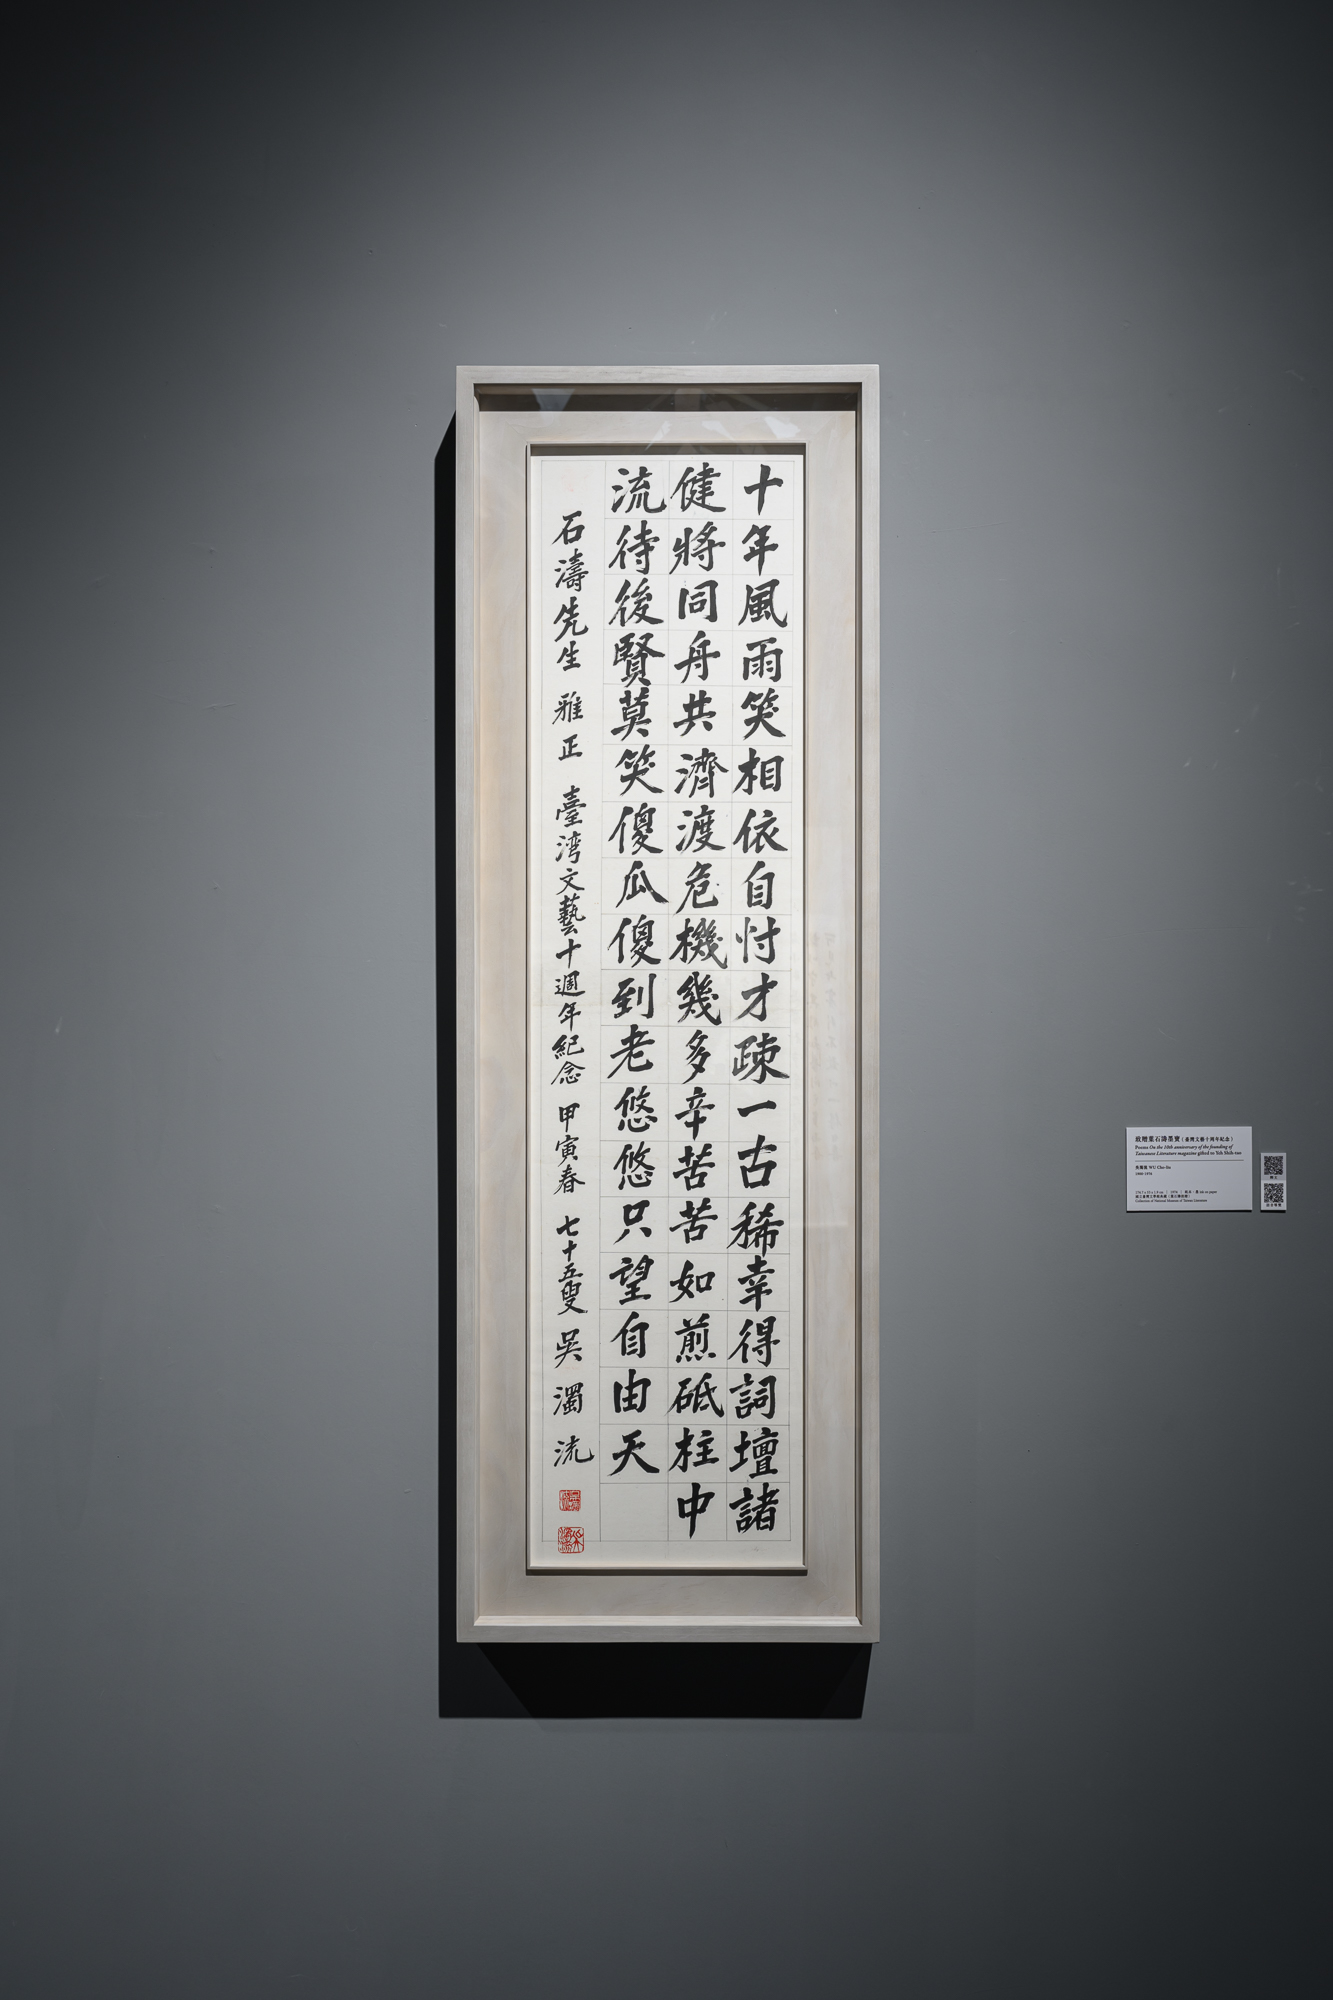 十年風雨笑相依自忖才疎一古稀幸得詞壇諸
健將同舟共濟渡危機幾多辛苦苦如煎砥柱中
流待後賢莫笑傻瓜傻到老悠悠只望自由天
石濤先生 雅正 臺湾文藝十週年紀念 甲寅春 七十五叟 吳濁流
致贈葉石濤墨寶（臺灣文藝十周年紀念）
Poems On the 10th anniversary of the founding of
Taiwanese Literature magazine gifted to Yeh Shih-tao
吳濁流 WU Cho-liu
1900-1976
Collection of National Museum of Taiwan Literature